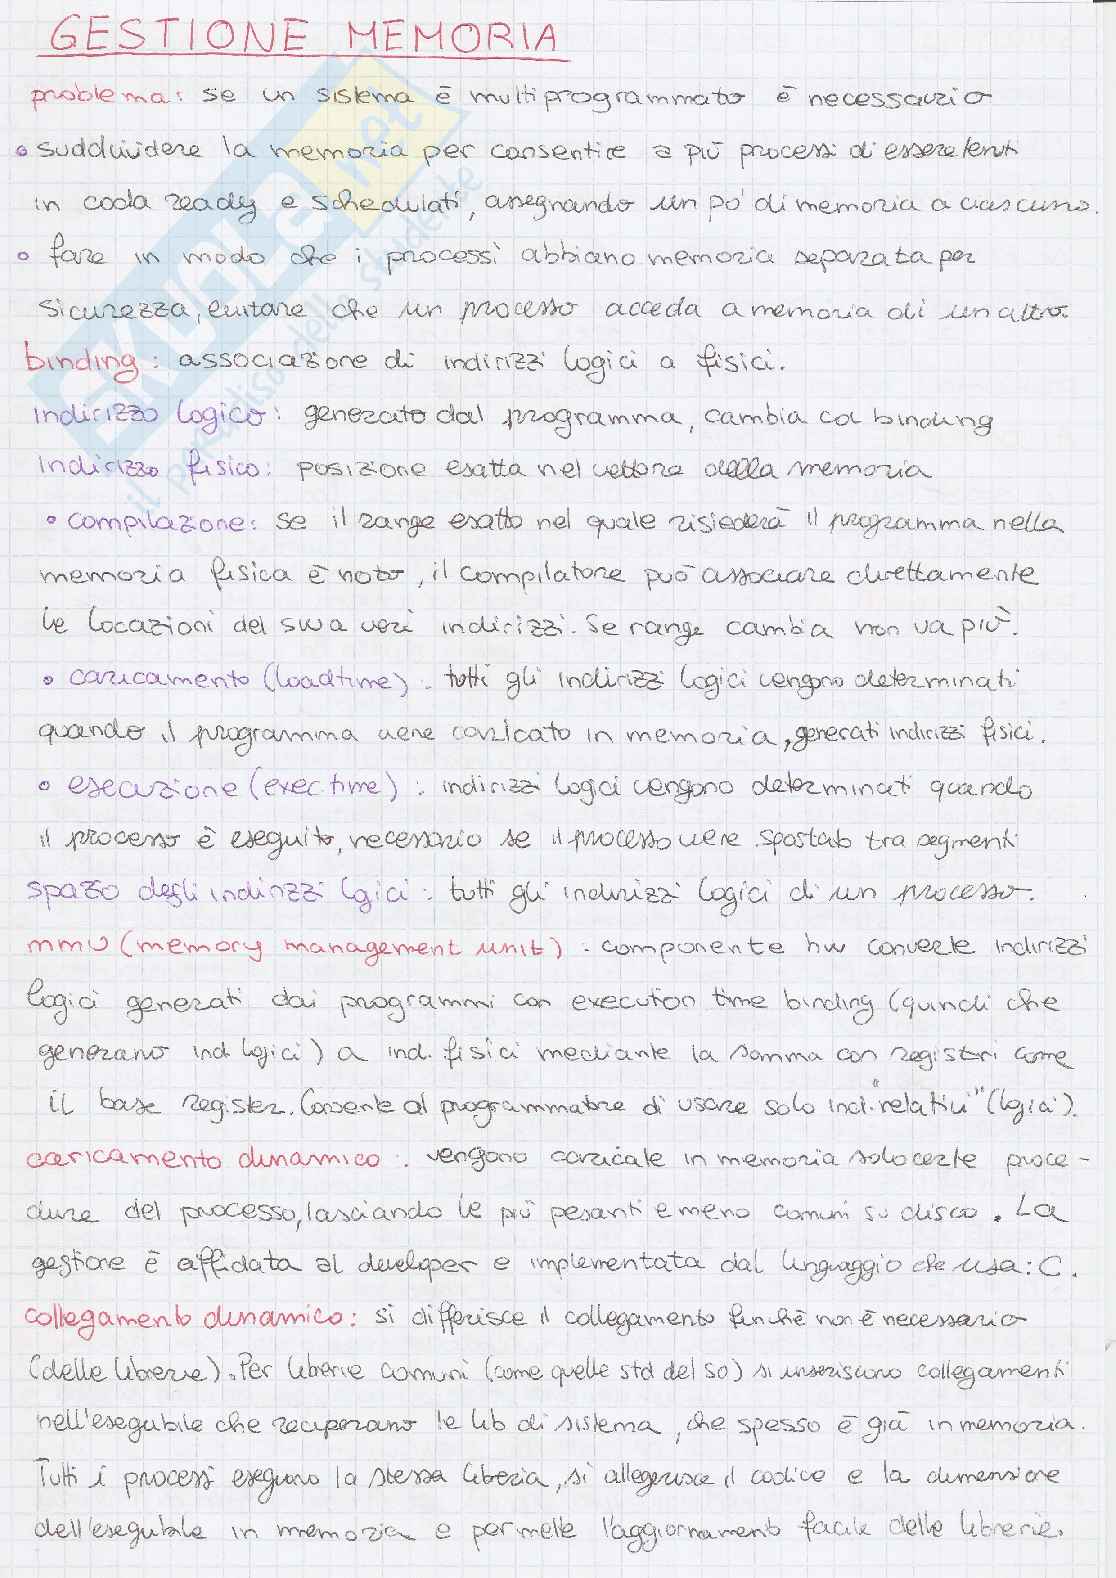 GESTIONE MEMORIA
problema: se un sistema è multiprogrammato è necessario
• suddividere la memoria per consentire a più processi di essere tenuti
in coda ready e schedulati, assegnando un po' di memoria a ciascuno.
• fare in modo che i processi abbiano memoria separata per
sicurezza, evitare che un processo acceda a memoria di un altro.
binding: associazione di indirizzi logici a fisici.
indirizzo logico: generato dal programma, cambia col binding
indirizzo fisico: posizione esatta nel vettore della memoria
• compilazione: se il range esatto nel quale risiederà il programma nella
memoria fisica è noto, il compilatore può associare direttamente
le locazioni del sw a veri indirizzi. Se range cambia non va più.
• caricamento (loadtime): tutti gli indirizzi logici vengono determinati
quando il programma viene caricato in memoria, generati indirizzi fisici.
• esecuzione (exec.time): indirizzi logici vengono determinati quando
il processo è eseguito, necessario se il processo viene spostato tra segmenti
spazio degli indirizzi logici: tutti gli indirizzi logici di un processo.
mmu (memory management unit): componente hw converte indirizzi
logici generati dai programmi con execution time binding (quindi che
generano ind. logici) a ind. fisici mediante la somma con registri come
il base register. Consente al programmatore di usare solo ind. "relativi" (logici).
caricamento dinamico: vengono caricate in memoria solo certe proce-
dure del processo, lasciando le più pesanti e meno comuni su disco. La
gestione è affidata al developer e implementata dal linguaggio che usa: C.
collegamento dinamico: si differisce il collegamento finchè non è necessario
(delle librerie). Per librerie comuni (come quelle std del so) si inseriscono collegamenti
nell'eseguibile che recuperano le lib di sistema, che spesso è già in memoria.
Tutti i processi eseguono la stessa libreria, si alleggerisce il codice e la dimensione
dell'eseguibile in memoria e permette l'aggiornamento facile delle librerie.
SKUOLA.net
il paradiso dello studente